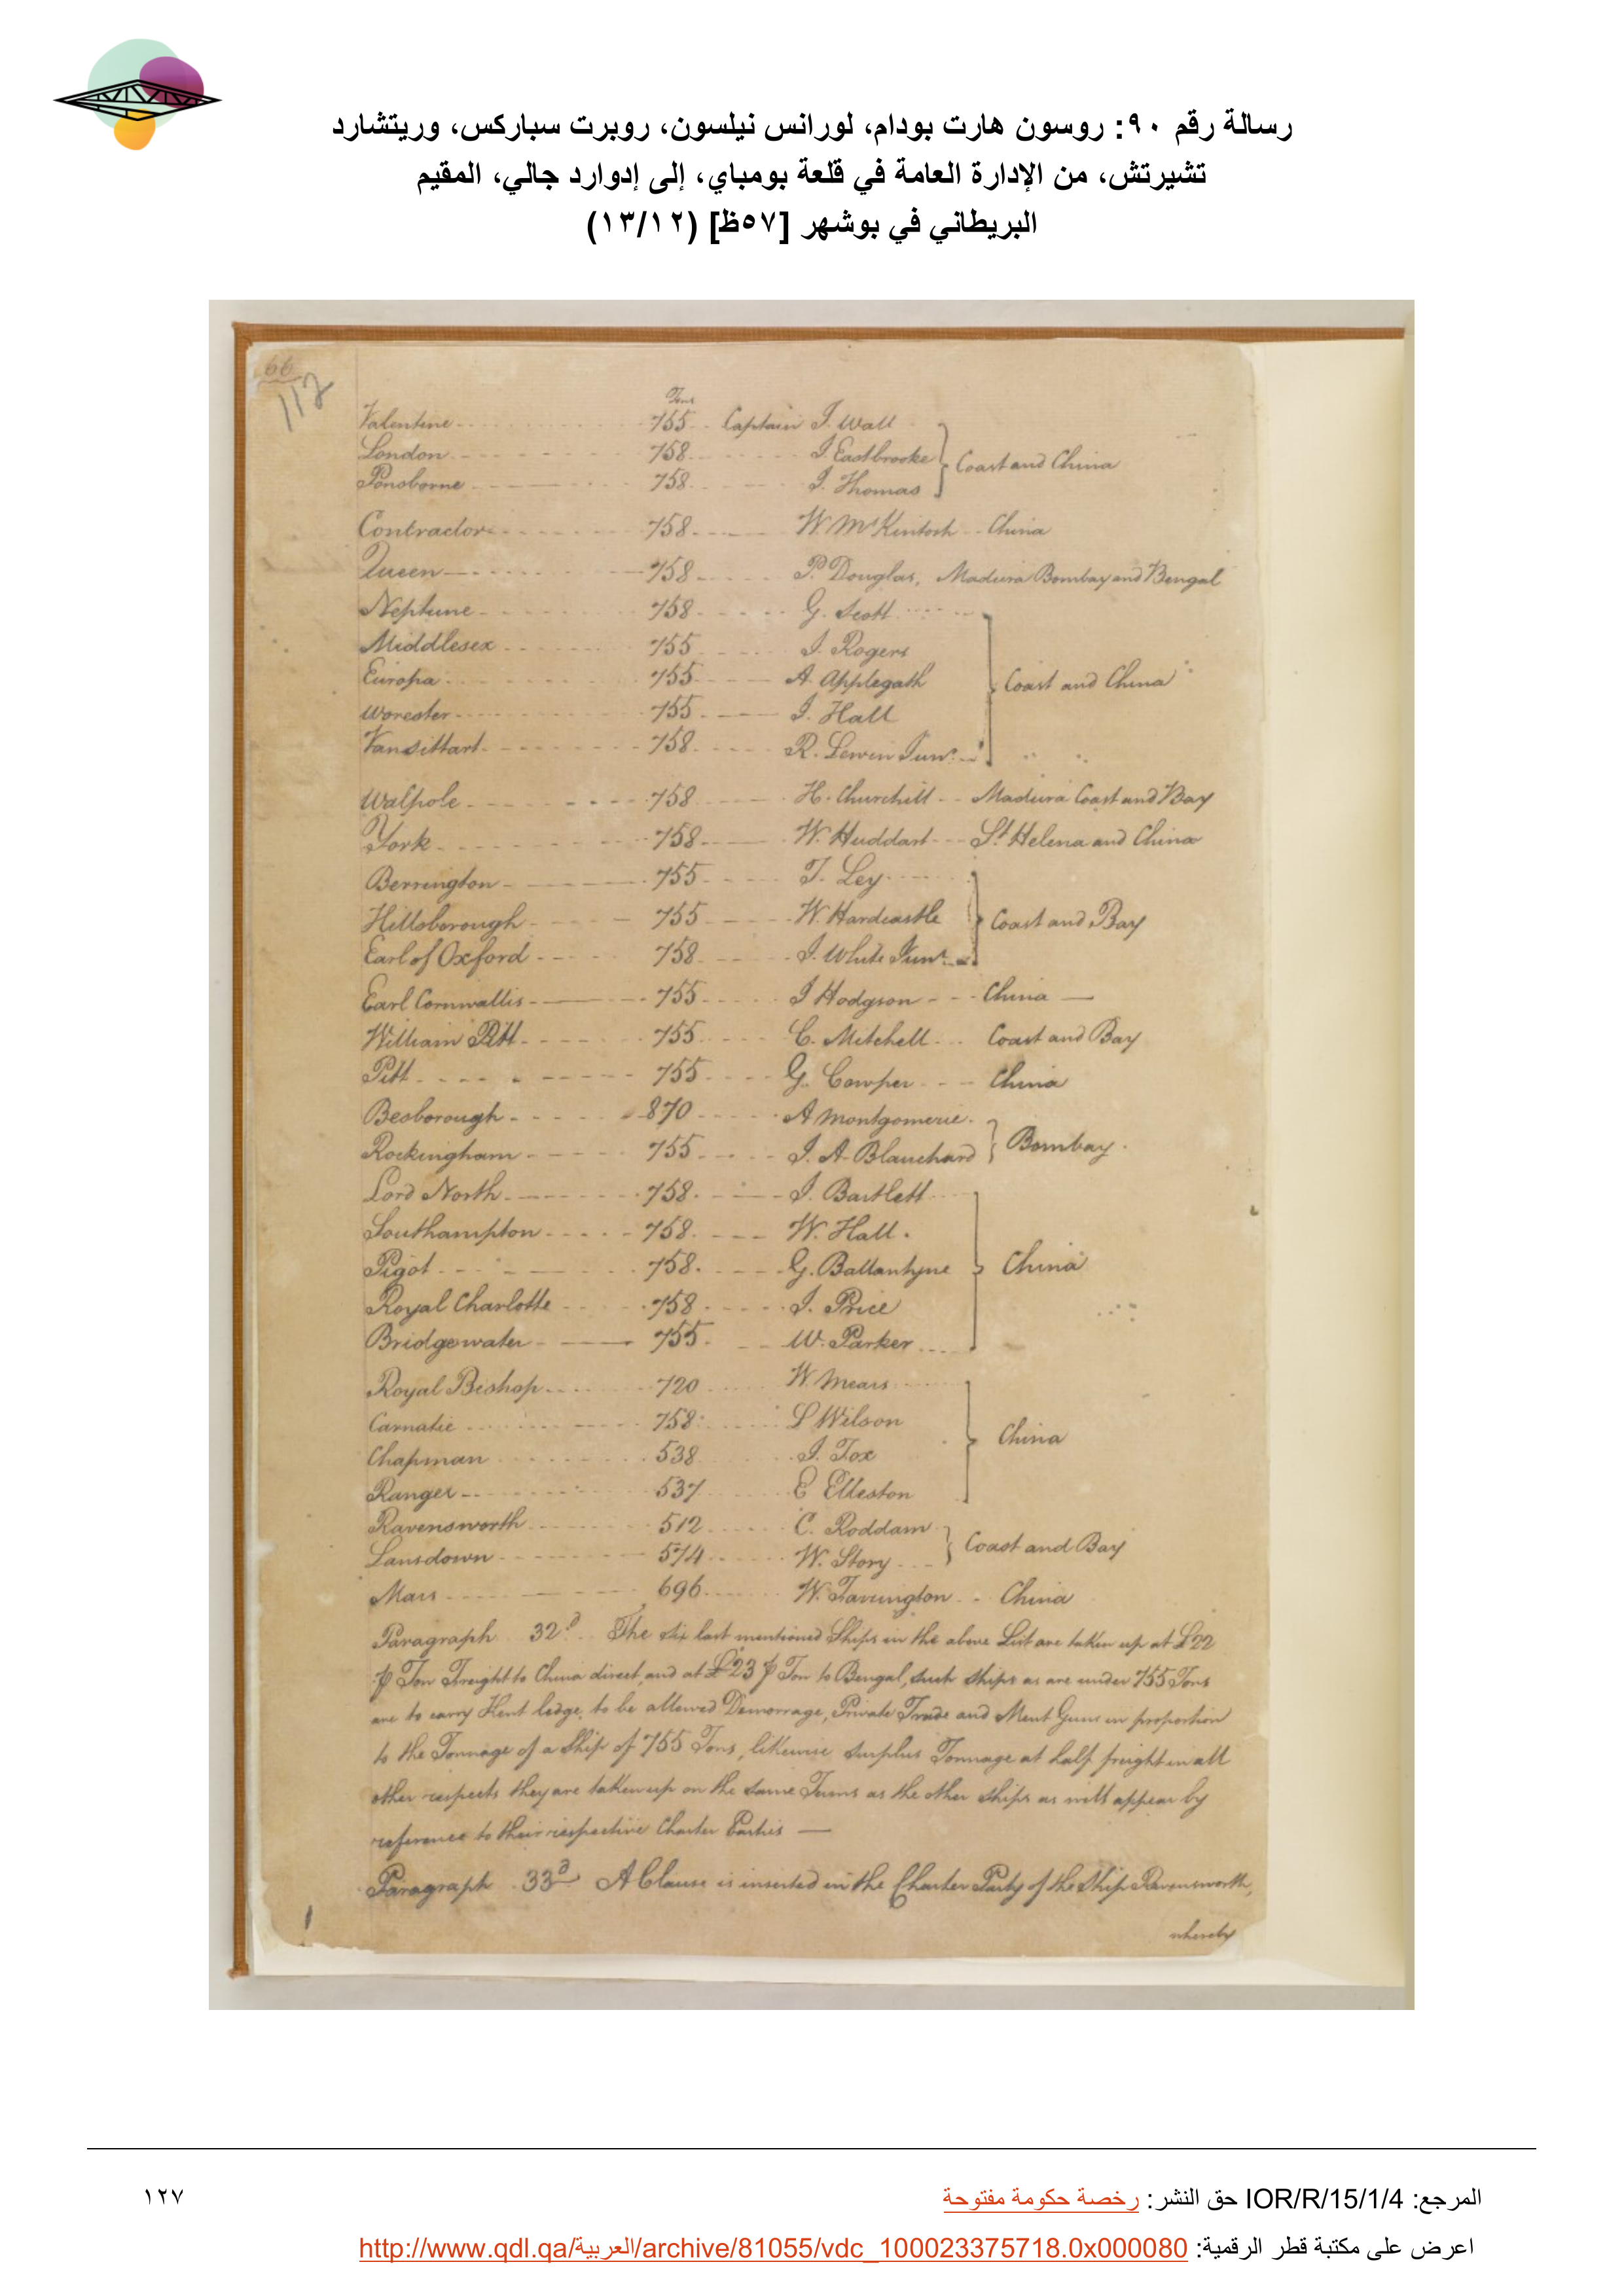 رسالة رقم ٩٠: روسون هارت بودام، لورانس نيلسون، روبرت سباركس، وريتشارد
تشيرتش، من الإدارة العامة في قلعة بومباي، إلى إدوارد جالي، المقيم
البريطاني في بوشهر [٥٧ظ] (١٣/١٢)
66
112
Tons
Valentine 755 Captain J. Wall
London 758 J. Eastbrooke
Ponsborne 758 J. Thomas
Coast and China
Contractor 758 W. McKintosh China
Queen 758 P. Douglas, Madeira Bombay and Bengal
Neptune 758 G. Scott
Middlesex 755 J. Rogers
Europa 755 A. Applegath
Worcester 755 J. Hall
Vansittart 758 R. Lewin Junr.
Coast and China
Walpole 758 H. Churchill Madeira Coast and Bay
York 758 W. Huddart St. Helena and China
Berrington 755 T. Ley
Hillsborough 755 W. Hardcastle
Earl of Oxford 758 J. White Junr.
Coast and Bay
Earl Cornwallis 755 J Hodgson China
William Pitt 755 C. Mitchell Coast and Bay
Pitt 755 G. Cowper China
Besborough 870 A Montgomerie
Rockingham 755 J. A. Blanchard
Bombay
Lord North 758 J. Bartlett
Southampton 758 W. Hall
Pigot 758 G. Ballantyne
Royal Charlotte 758 J. Price
Bridgewater 755 W. Parker
China
Royal Bishop 720 W. Mears
Carnatic 758 L Wilson
Chapman 538 J. Fox
Ranger 537 E Elleston
China
Ravensworth 512 C. Roddam
Lansdown 574 W. Story
Coast and Bay
Mars 696 W. Farrington China
Paragraph 32d. The six last mentioned Ships in the above List are taken up at £22
P Ton Freight to China direct, and at £23 P Ton to Bengal, such ships as are under 755 Tons
are to carry Kent ledge, to be allowed Demorrage, Private Trade and Ment Guns in proportion
to the Tonnage of a Ship of 755 Tons, likewise surplus Tonnage at half freight in all
other respects they are taken up on the same Terms as the other ships as will appear by
reference to their respective Charter Parties
Paragraph 33d A Clause is inserted in the Charter Party of the Ship Ravensworth,
whereby
المرجع: IOR/R/15/1/4 حق النشر: رخصة حكومة مفتوحة
١٢٧
اعرض على مكتبة قطر الرقمية: http://www.qdl.qa/العربية/archive/81055/vdc_100023375718.0x000080